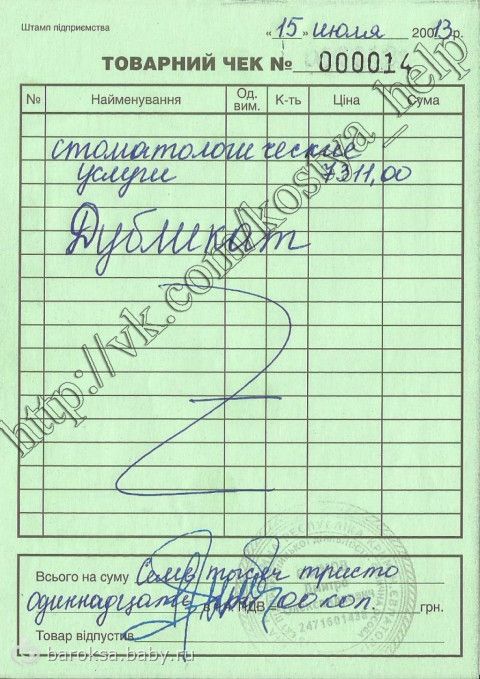 Штамп підприємства
« 15 » июля 200 13 р.
ТОВАРНИЙ ЧЕК № 000014
№ Найменування Од. вим. К-ть Ціна Сума
стоматологические
услуги 7311,00
Дубликат
http://vk.com/kostya_help
Всього на суму Семь тысяч триста
одиннадцать ПДВ 00 коп. грн.
Товар відпустив
2471601436
baroksa.baby.ru